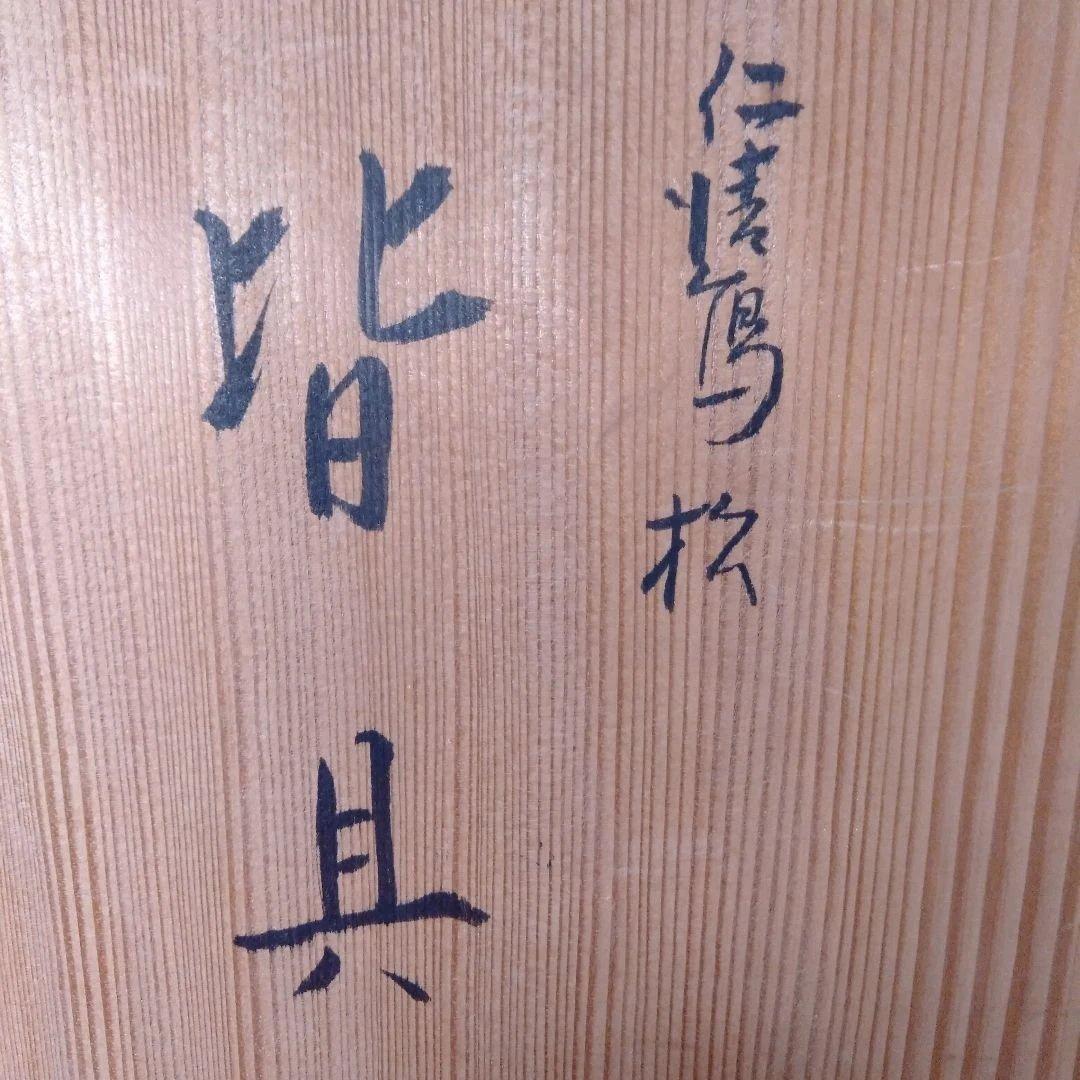 仁清冩 松
皆具